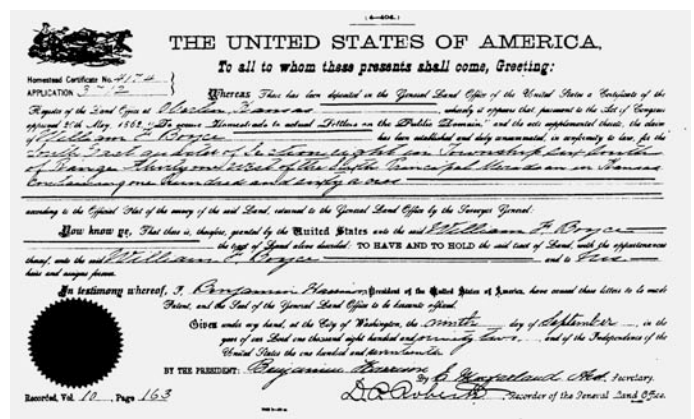 (4—404.)
THE UNITED STATES OF AMERICA,
To all to whom these presents shall come, Greeting:
Homestead Certificate No. 4174
APPLICATION 3712
Whereas There has been deposited in the General Land Office of the United States a Certificate of the
Register of the Land Office at Oberlin, Kansas, whereby it appears that, pursuant to the Act of Congress
approved 20th May, 1862, "To secure Homesteads to actual Settlers on the Public Domain," and the acts supplemental thereto, the claim
of William F. Boyce has been established and duly consummated, in conformity to law, for the
South East quarter of Section eight in Township six South
of Range thirty one West of the Sixth Principal Meridian in Kansas
Containing one hundred and sixty acres
according to the Official Plat of the survey of the said Land, returned to the General Land Office by the Surveyor General:
Now know ye, That there is, therefore, granted by the United States unto the said William F. Boyce
the tract of Land above described: TO HAVE AND TO HOLD the said tract of Land, with the appurtenances
thereof, unto the said William F. Boyce and to his
heirs and assigns forever.
In testimony whereof, I, Benjamin Harrison, President of the United States of America, have caused these letters to be made
Patent, and the Seal of the General Land Office to be hereunto affixed.
Given under my hand, at the City of Washington, the ninth day of September, in the
year of our Lord one thousand eight hundred and ninety two, and of the Independence of the
United States the one hundred and seventeenth
BY THE PRESIDENT: Benjamin Harrison
By Macfarland, Secretary.
D. P. Roberts, Recorder of the General Land Office.
Recorded, Vol. 10, Page 163